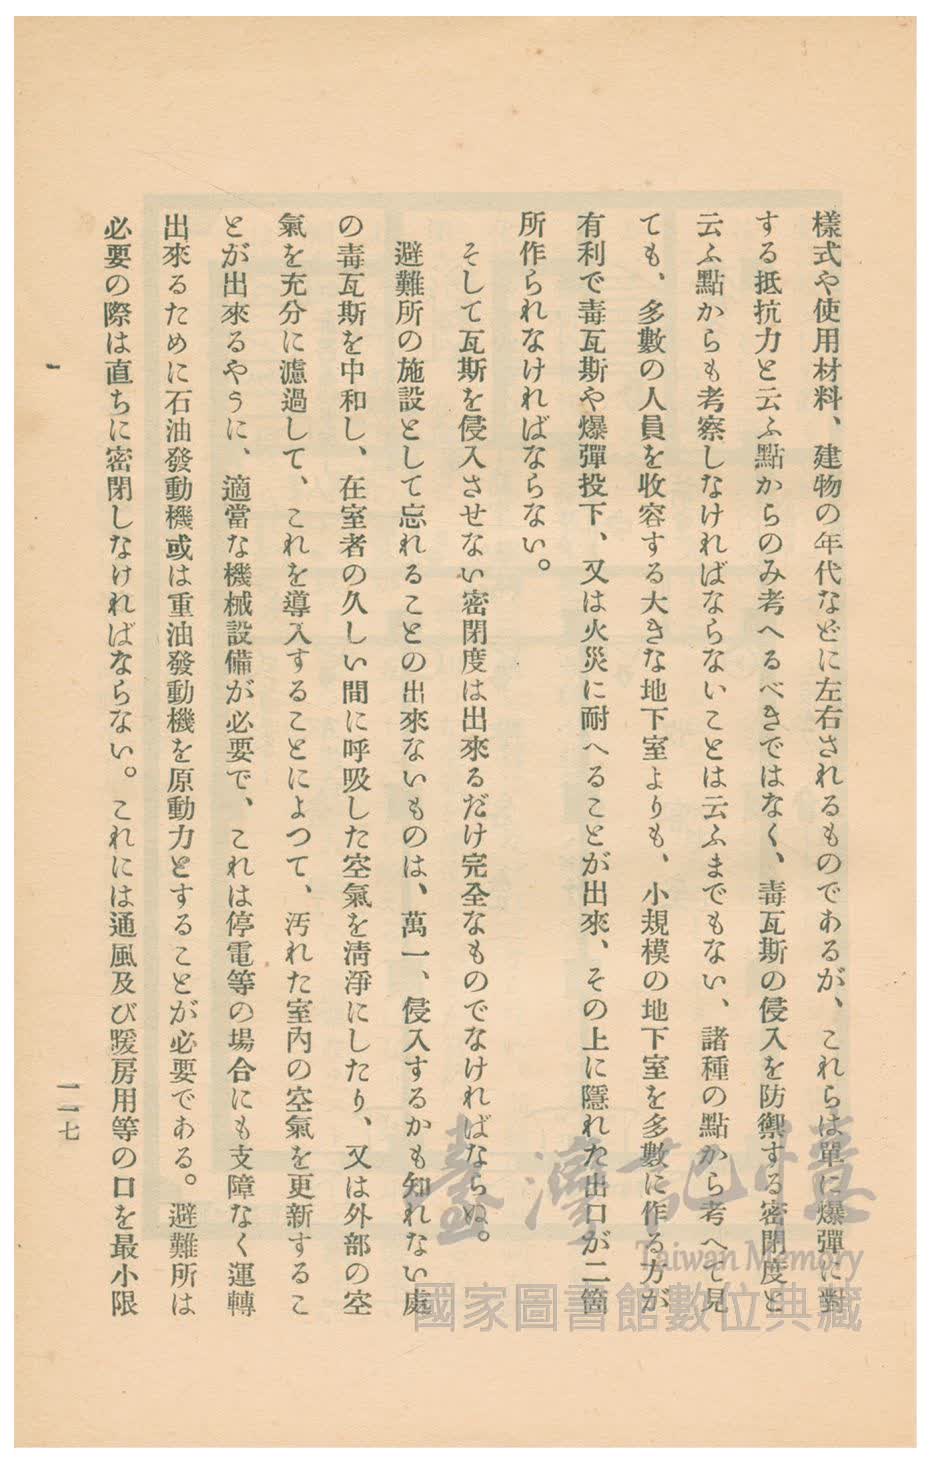 樣式や使用材料、建物の年代などに左右されるものであるが、これらは單に爆彈に對
する抵抗力と云ふ點からのみ考へるべきではなく、毒瓦斯の侵入を防禦する密閉度と
云ふ點からも考察しなければならないことは云ふまでもない、諸種の點から考へて見
ても、多數の人員を收容する大きな地下室よりも、小規模の地下室を多數に作る方が
有利で毒瓦斯や爆彈投下、又は火災に耐へることが出來、その上に隱れた出口が二箇
所作られなければならない。
そして瓦斯を侵入させない密閉度は出來るだけ完全なものでなければならぬ。
避難所の施設として忘れることの出來ないものは、萬一、侵入するかも知れない處
の毒瓦斯を中和し、在室者の久しい間に呼吸した空氣を淸淨にしたり、又は外部の空
氣を充分に濾過して、これを導入することによつて、汚れた室內の空氣を更新するこ
とが出來るやうに、適當な機械設備が必要で、これは停電等の場合にも支障なく運轉
出來るために石油發動機或は重油發動機を原動力とすることが必要である。避難所は
必要の際は直ちに密閉しなければならない。これには通風及び暖房用等の口を最小限
一一七
臺灣記憶
Taiwan Memory
國家圖書館數位典藏